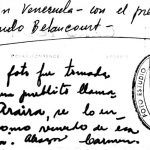 n Venezuela - con el pre
ulo Betancourt -
foto fue tomada
un pueblito llama
Araira, se lo en
como recuerdo de esa
Carmen
FOTO ESTUDIO